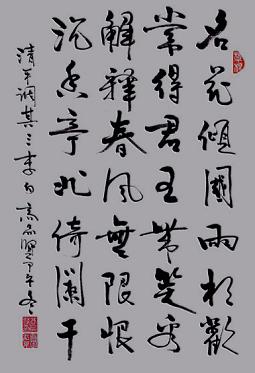 名花傾國兩相歡
常得君王帶笑看
解釋春風無限恨
沉香亭北倚闌干
清平調其三李白高甲午冬